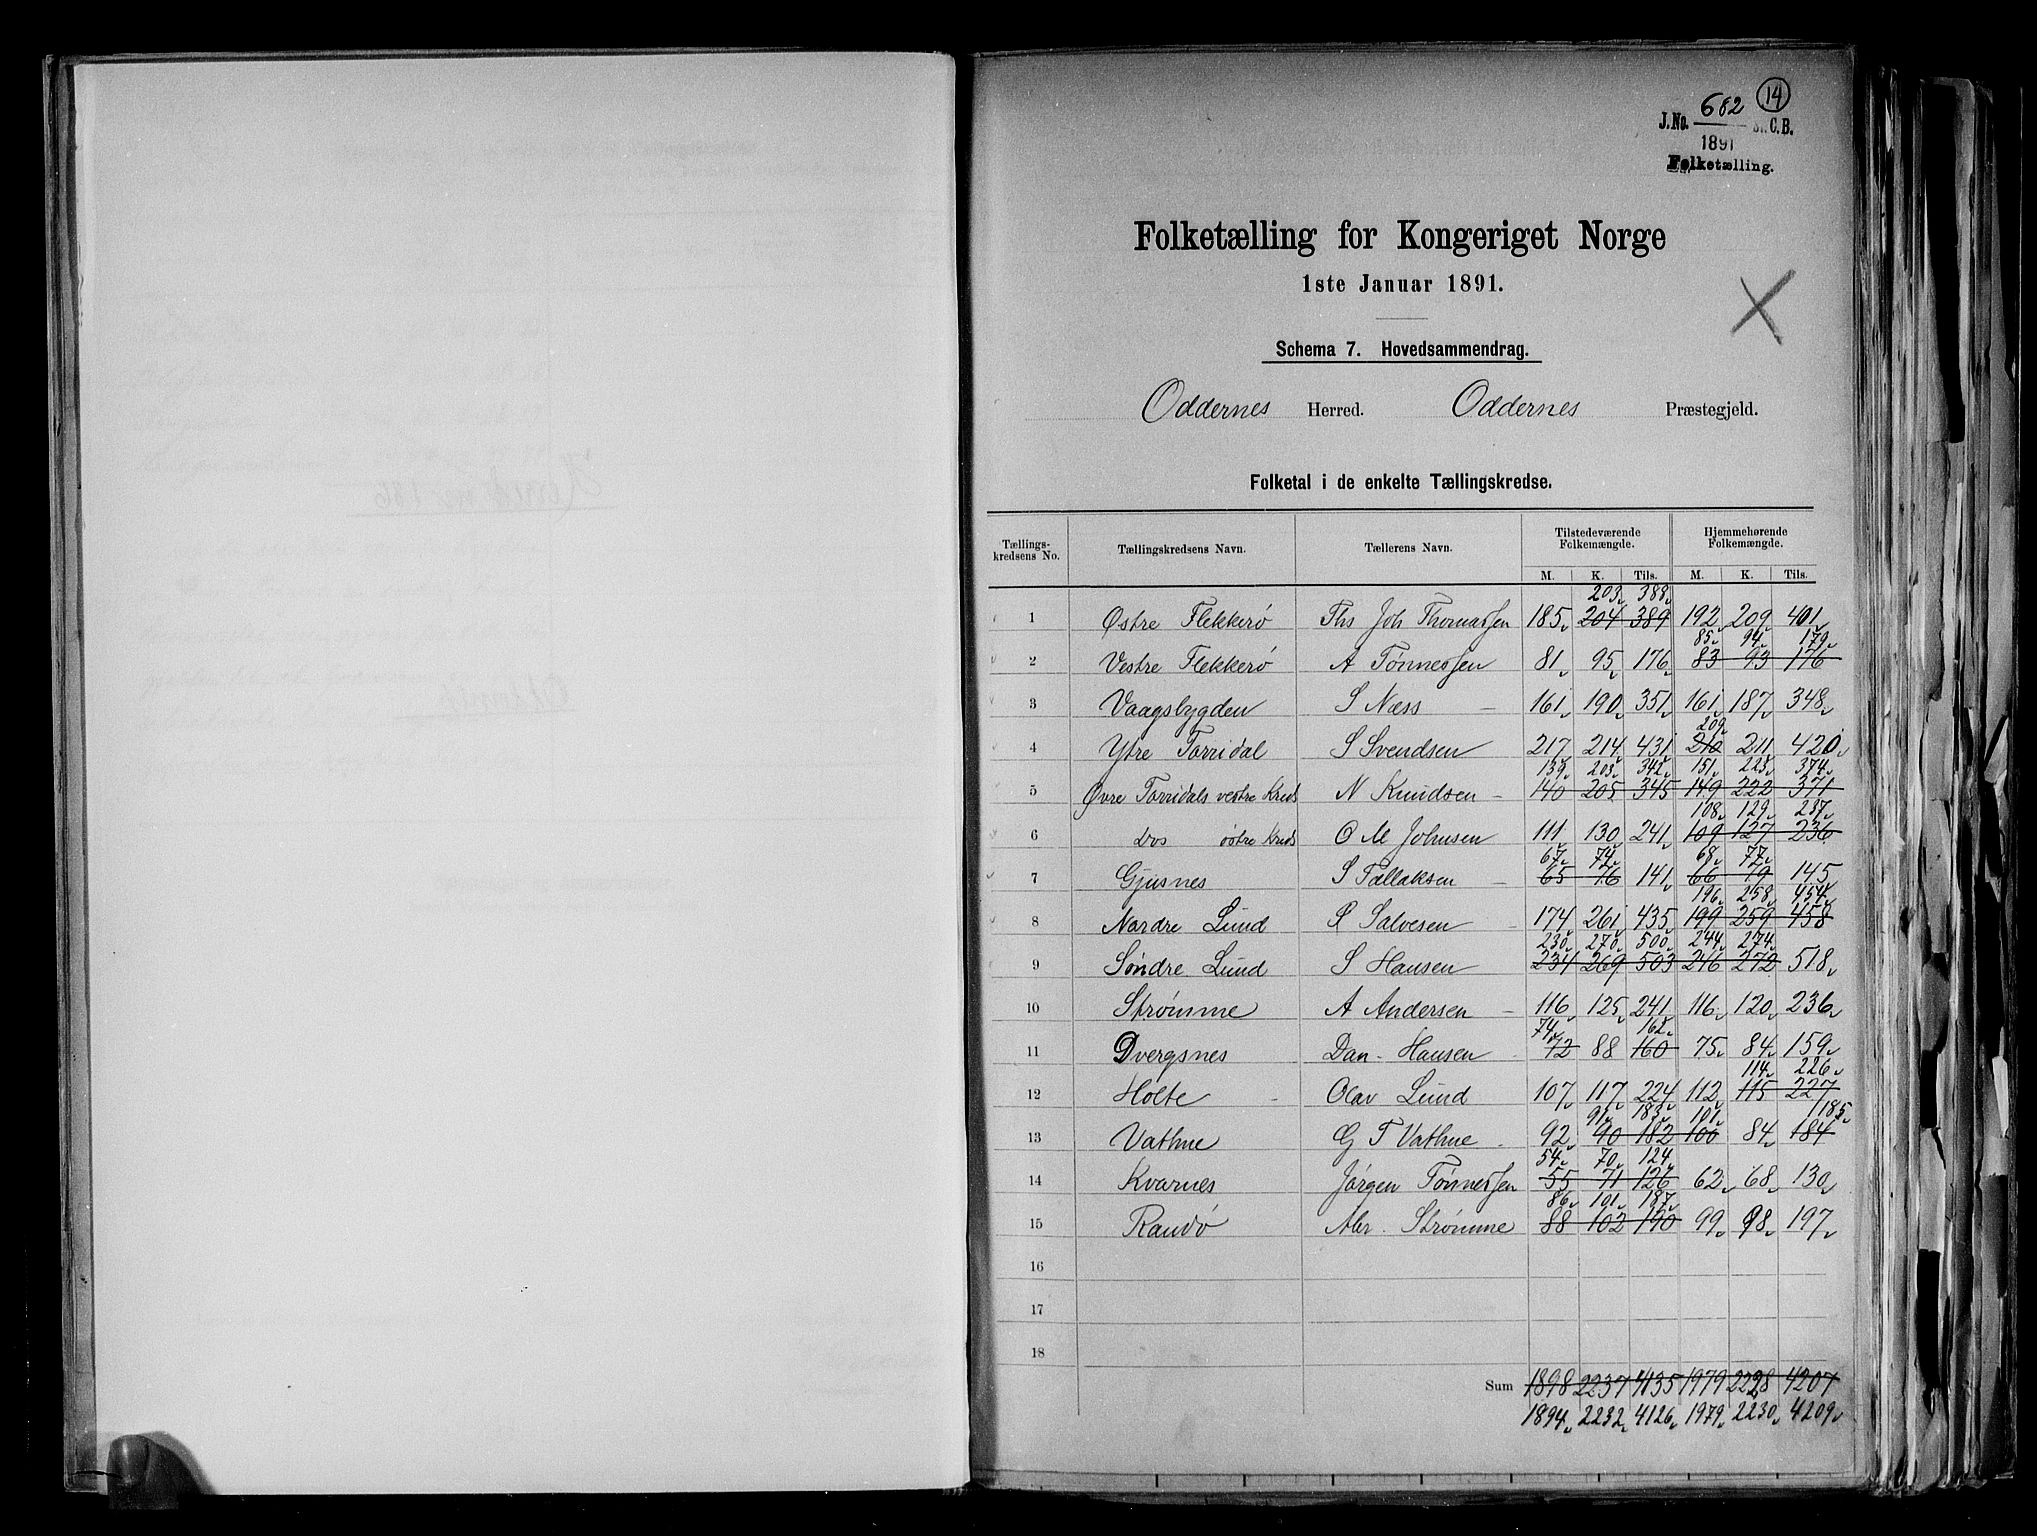 14
J.No. 682 C.B.
1891
Folketælling.
Folketælling for Kongeriget Norge
1ste Januar 1891.
Schema 7. Hovedsammendrag.
Oddernes Herred. Oddernes Præstegjeld.
Folketal i de enkelte Tællingskredse.
Tællings-kredsens No. Tællingskredsens Navn. Tællerens Navn. Tilstedeværende Folkemængde. Hjemmehørende Folkemængde.
M. K. Tils. M. K. Tils.
203 388
1 Østre Flekkerø Ths Joh Thomassen 185 204 389 192 209 401
85 94 179
2 Vestre Flekkerø A Tønnessen 81 95 176 83 93 176
3 Vaagsbygden S Næss 161 190 351 161 187 348
209
4 Ytre Torridal S Svendsen 217 214 431 210 211 420
139 203 342 151 223 374
5 Øvre Torridals vestre Kreds N Knudsen 140 205 345 149 222 371
108 129 237
6 Dos østre Kreds O M Johnsen 111 130 241 109 127 236
67 74 68 77
7 Gjusnes S Tallaksen 65 76 141 66 79 145
196 258 454
8 Nordre Lund Salvesen 174 261 435 199 259 458
230 270 500 244 274
9 Søndre Lund S Hansen 234 269 503 246 272 518
10 Strømme A Andersen 116 125 241 116 120 236
74 162
11 Dvergsnes Dan. Hansen 72 88 160 75 84 159
114 226
12 Holte Olav Lund 107 117 224 112 115 227
91 183 101 185
13 Vathne G T Vathne 92 90 182 100 84 184
54 70 124
14 Kvarnes Jørgen Tønnessen 55 71 126 62 68 130
86 101 187
15 Randø Alv. Strømme 88 102 190 99 98 197
16
17
18
Sum 1898 2237 4135 1979 2228 4207
1894 2232 4126 1979 2230 4209